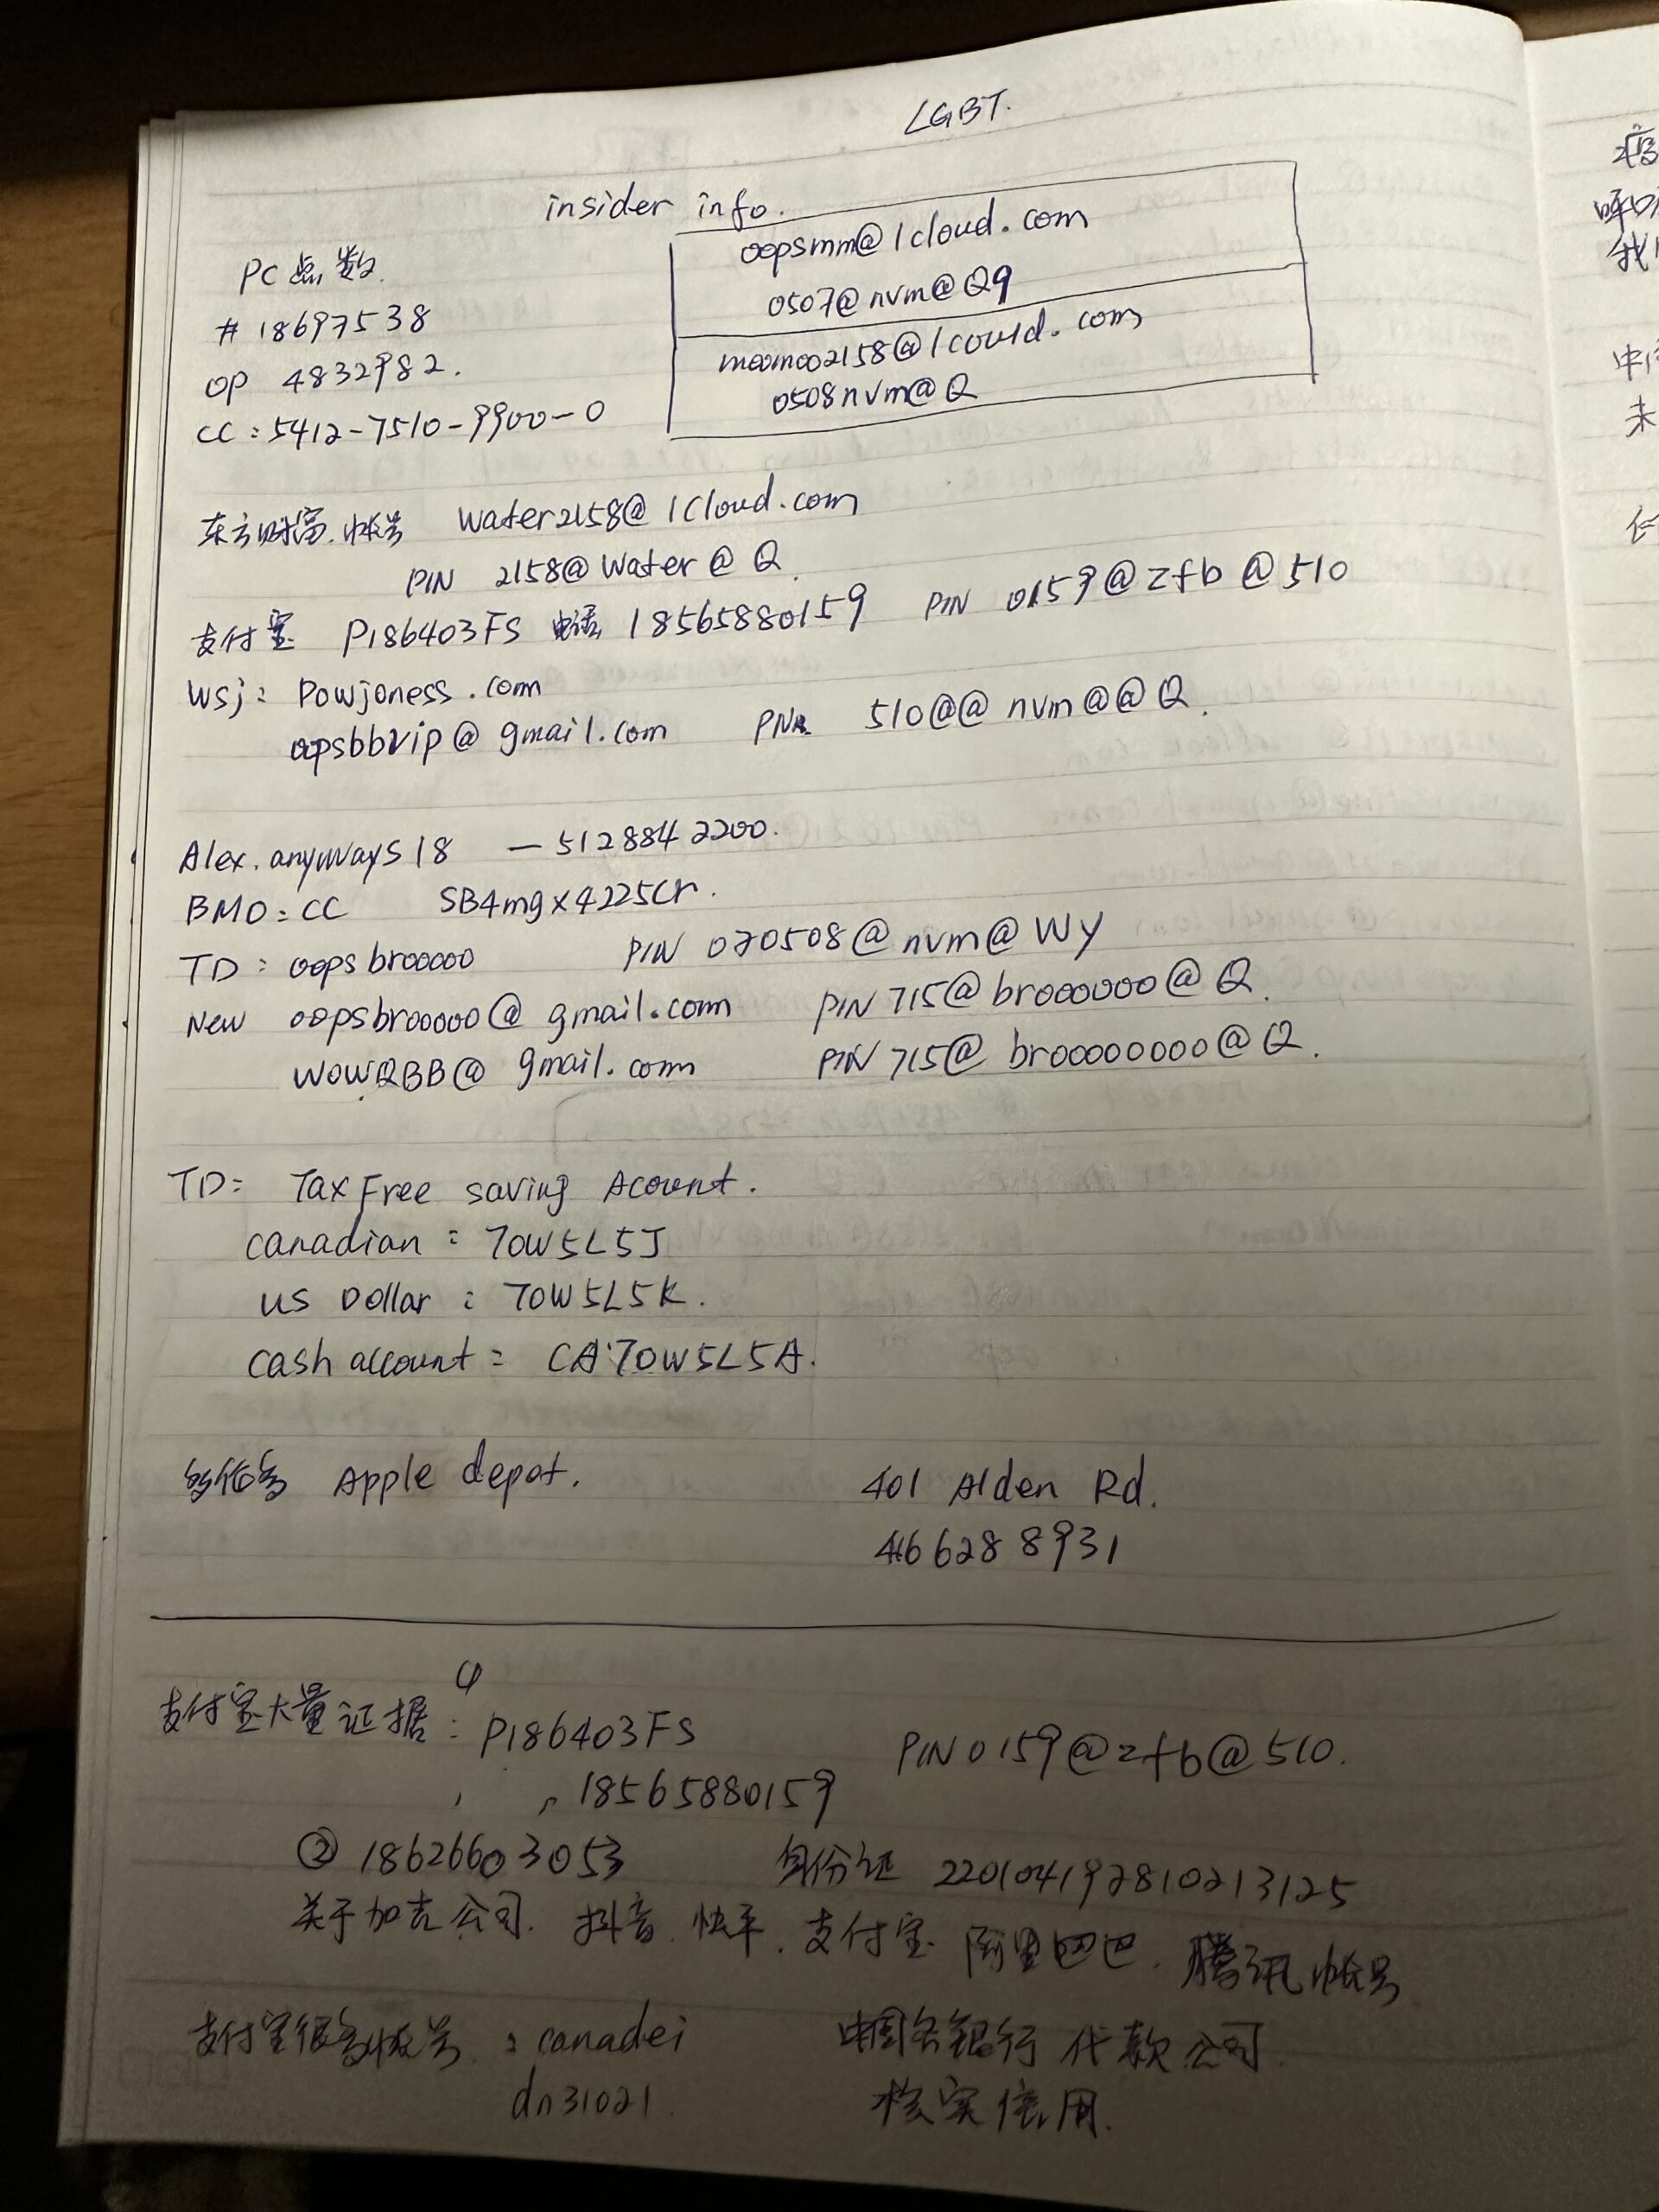 LGBT.
insider info.
oopsmm@1cloud.com
0507@nvm@Q9
moomoo2158@1could.com
0508nvm@Q
PC点数
# 18697538
OP 4832982.
CC:5412-7510-9900-0
东方财富.帐号 Water2158@1Cloud.com
PIN 2158@Water@Q
支付宝 P186403FS 电话 18565880159 PIN 0159@zfb@510
WSj: Dowjoness.com
oopsbbvip@gmail.com 510@@nvm@@Q.
Alex.anyways18 — 5128842200.
BMO:CC SB4mgx4225Cr.
TD: oopsbrooooo PIN 070508@nvm@Wy
New oopsbrooooo@gmail.com PIN 715@brooooooo@Q.
WOWQBB@gmail.com PIN 715@brooooooooo@Q.
TD: Tax Free saving Acount.
canadian: 70W5L5J
US Dollar: 70W5L5K.
cash account: CA70W5L5A.
Apple depot. 401 Alden Rd.
416 628 8931
支付宝大量证据: P186403FS PIN 0159@zfb@510.
18565880159
② 18626603053 身份证 220104197810213125
关于加吉公司. 抖音.快手.支付宝 阿里巴巴.腾讯帐号
支付宝很多帐号: canadei 中国各银行 代款公司.
dn31021. 核实信用.